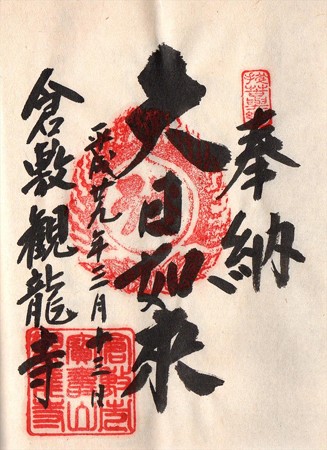 奉納
大日如来
平成廿九年三月十三日
倉敷観龍寺